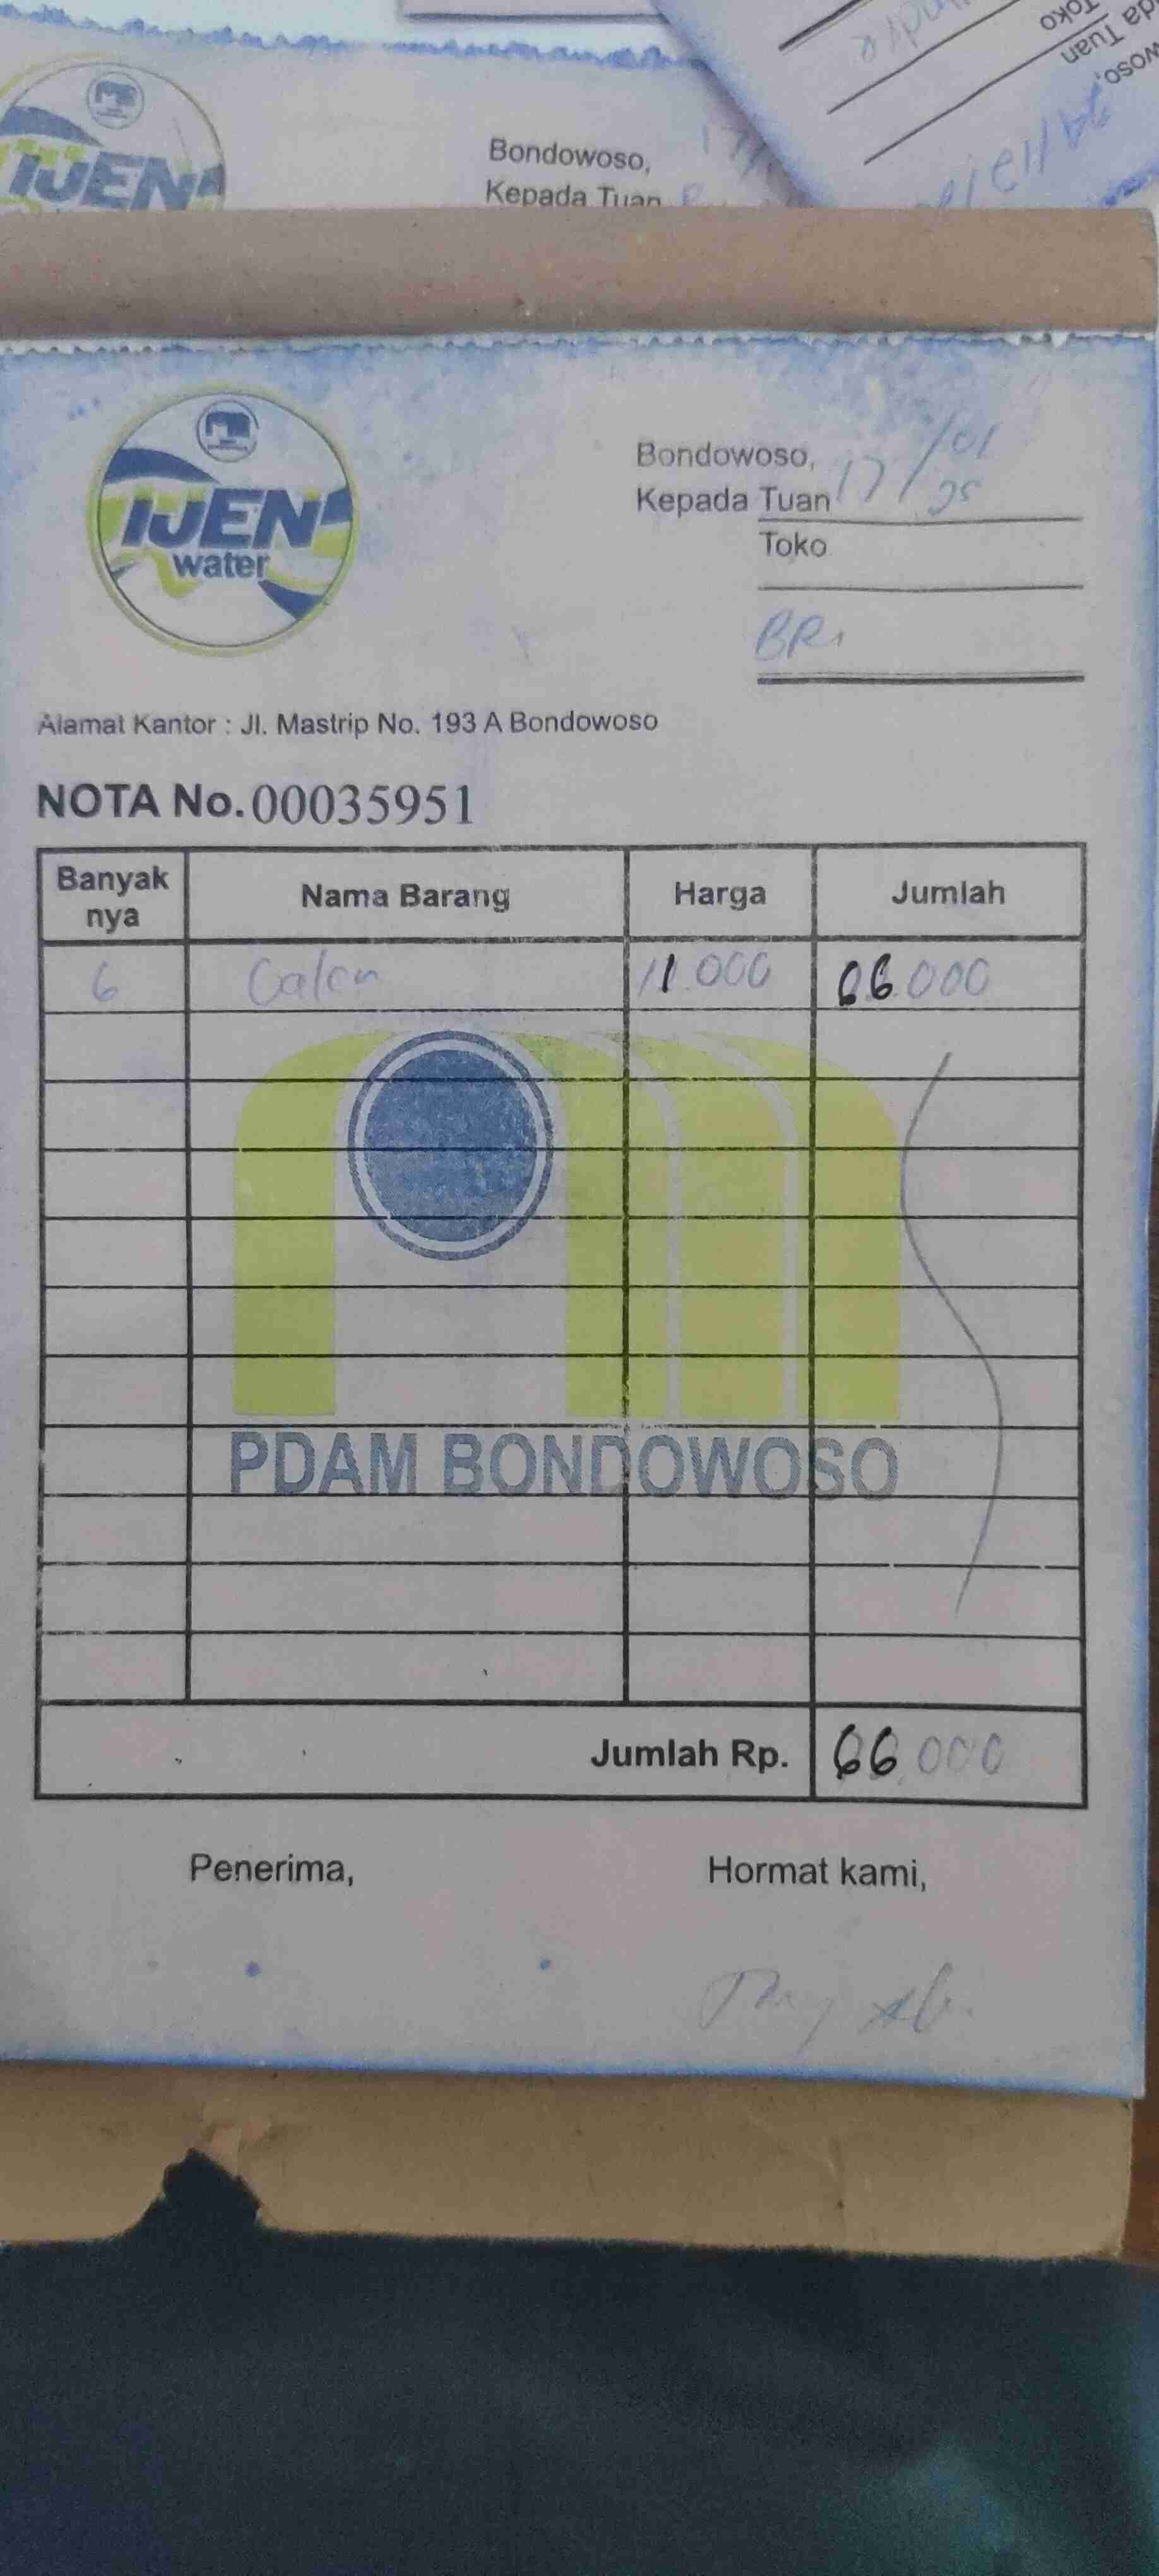 IJEN
Bondowoso,
Kepada Tuan
Toko
Tuan
IJEN
water
Bondowoso, 17/01/25
Kepada Tuan
Toko
BRi
Alamat Kantor : Jl. Mastrip No. 193 A Bondowoso
NOTA No. 00035951
Banyak nya Nama Barang Harga Jumlah
6 Galon 11.000 66.000
PDAM BONDOWOSO
Jumlah Rp. 66.000
Penerima, Hormat kami,